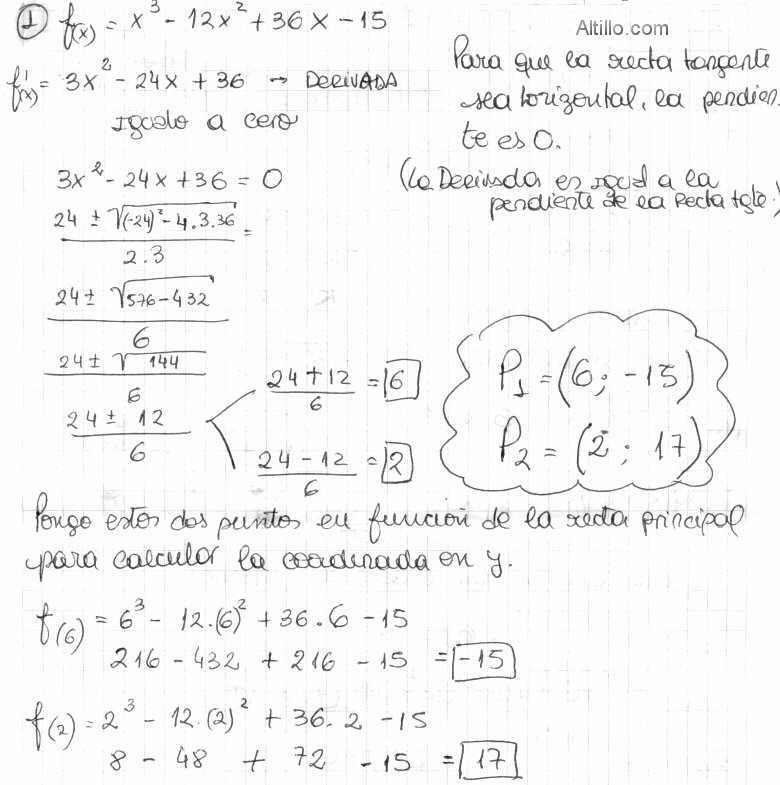 Altillo.com
1 f(x) = x³ - 12x² + 36x - 15
f'(x) = 3x² - 24x + 36 → DERIVADA
igualo a cero
Para que la recta tangente
sea horizontal, la pendien-
te es 0.
(La Derivada es igual a la
pendiente de la recta tgte.)
3x² - 24x + 36 = 0
24 ± √(-24)² - 4.3.36 =
2.3
24 ± √576 - 432
6
24 ± √144
6
24 ± 12
6
24 + 12 = 6
6
24 - 12 = 2
6
P₁ = (6 ; -15)
P₂ = (2 ; 17)
Pongo estos dos puntos en función de la recta principal
para calcular la coordinada en y.
f(6) = 6³ - 12.(6)² + 36.6 - 15
216 - 432 + 216 - 15 = -15
f(2) = 2³ - 12.(2)² + 36.2 - 15
8 - 48 + 72 - 15 = 17